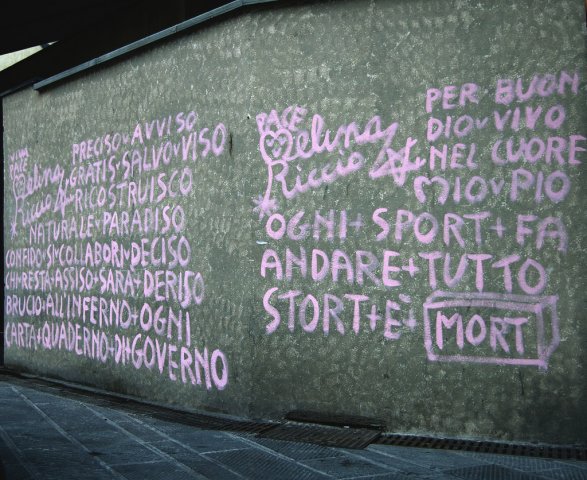 PRECISO+AVVISO
GRATIS+SALVO+VISO
Melina
Riccio
RICOSTRUISCO
NATURALE+PARADISO
CONFIDO+SI+COLLABORI+DECISO
CHI+RESTA+ASSISO+SARÀ+DERISO
BRUCIO+ALL'INFERNO+OGNI
CARTA+QUADERNO+DI+GOVERNO
PACE
Melina
Riccio
PER BUON
DIO+VIVO
NEL CUORE
MIO+PIO
OGNI+SPORT+FA
ANDARE+TUTTO
STORT+È+MORT